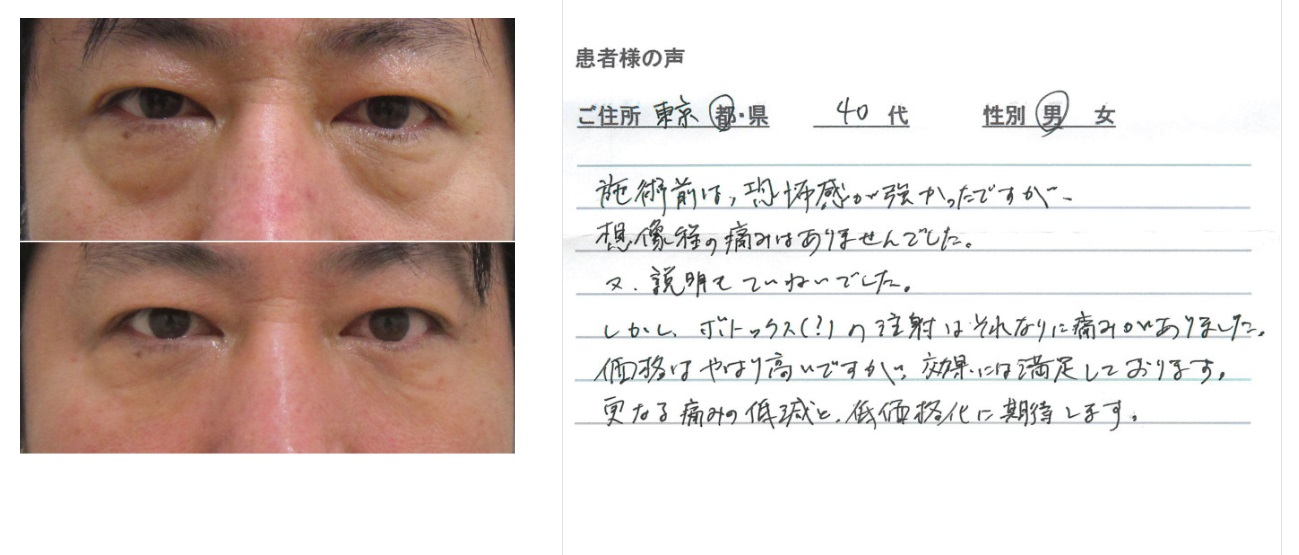 患者様の声
ご住所 東京 都・県 40 代 性別 男 女
施術前は、恐怖感が強かったですが、
想像程の痛みはありませんでした。
又、説明もていねいでした。
しかし、ボトックス(?)の注射はそれなりに痛みがありました。
価格はやはり高いですが、効果には満足しております。
更なる痛みの低減と、低価格化に期待します。